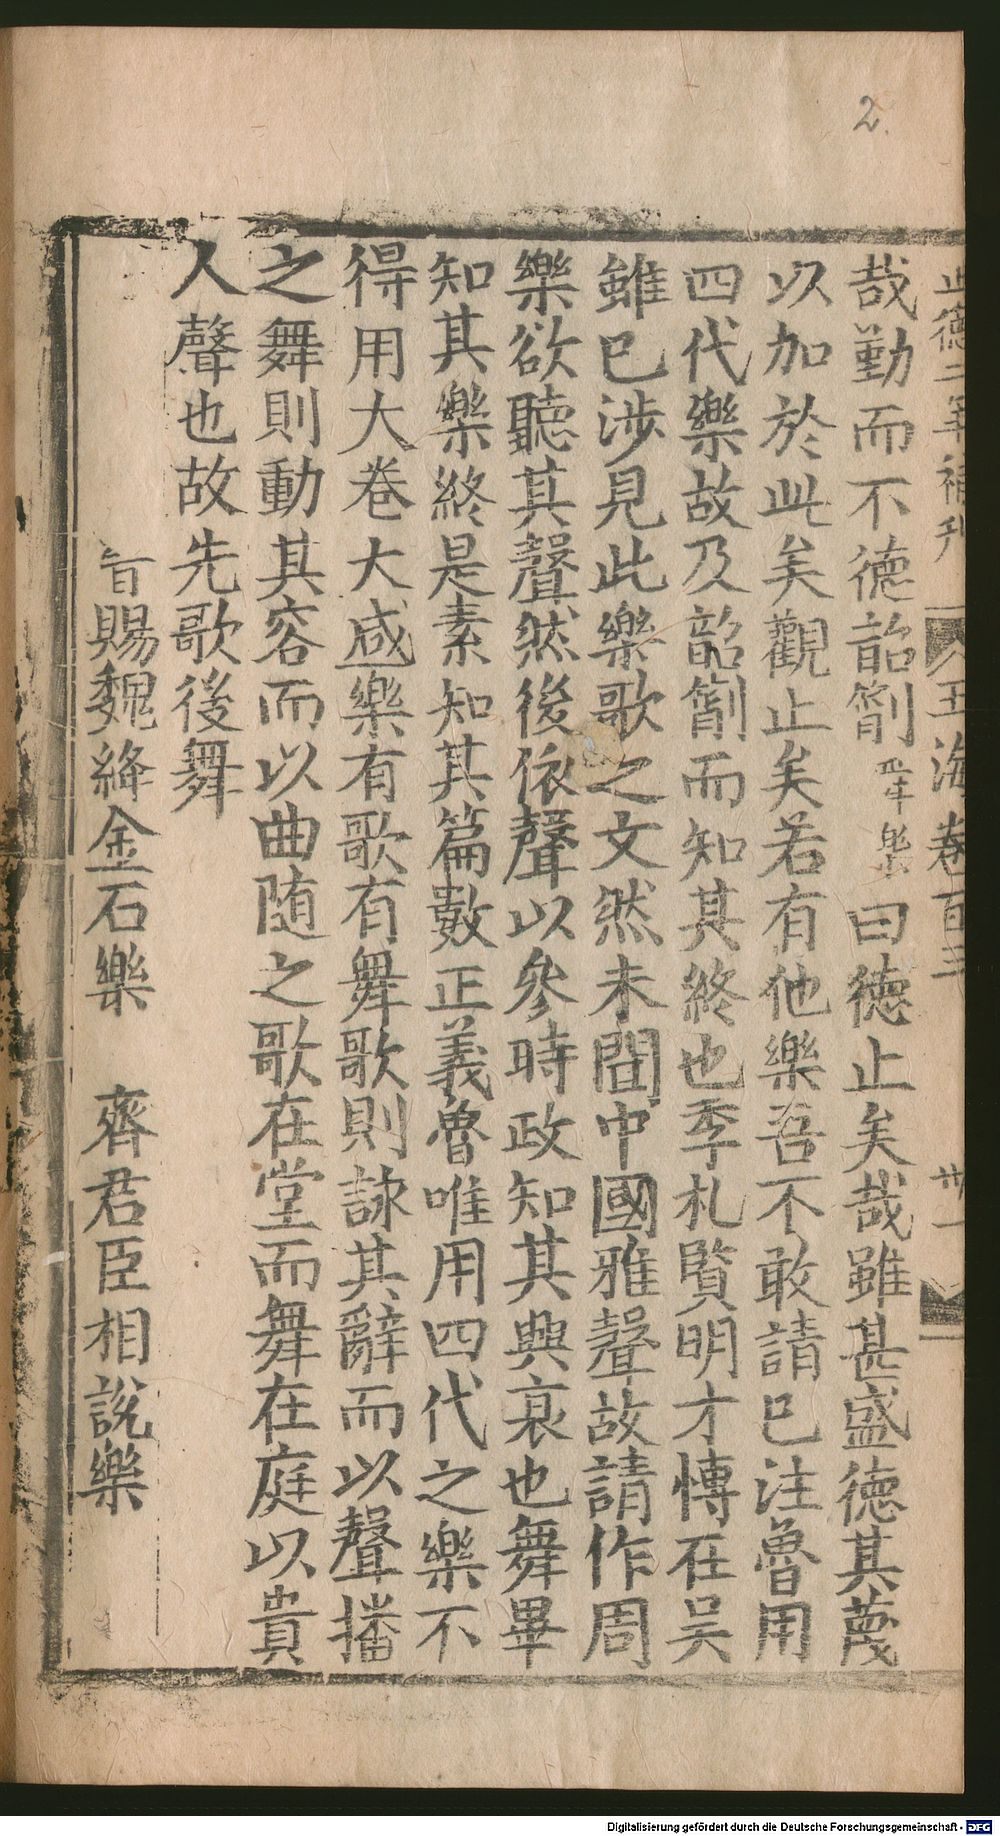 2.
正德二年補刊 玉海卷百三 廿一
哉勤而不德韶箾舜樂曰德止矣哉雖甚盛德其蔑
以加於此矣觀止矣若有他樂吾不敢請已注魯用
四代樂故及韶箾而知其終也季札賢明才博在吳
雖已涉見此樂歌之文然未聞中國雅聲故請作周
樂欲聽其聲然後依聲以參時政知其興衰也舞畢
知其樂終是素知其篇數正義魯唯用四代之樂不
得用大卷大咸樂有歌有舞歌則詠其辭而以聲播
之舞則動其容而以曲隨之歌在堂而舞在庭以貴
人聲也故先歌後舞
晉賜魏絳金石樂 齊君臣相說樂
Digitalisierung gefördert durch die Deutsche Forschungsgemeinschaft - DFG